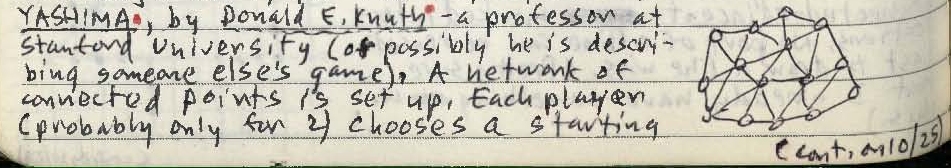 YASHIMA, by Donald E. Knuth - a professor at
Stanford University (or possibly he is descri-
bing someone else's game). A network of
connected points is set up. Each player
(probably only for 2) chooses a starting
(cont. on 10/25)